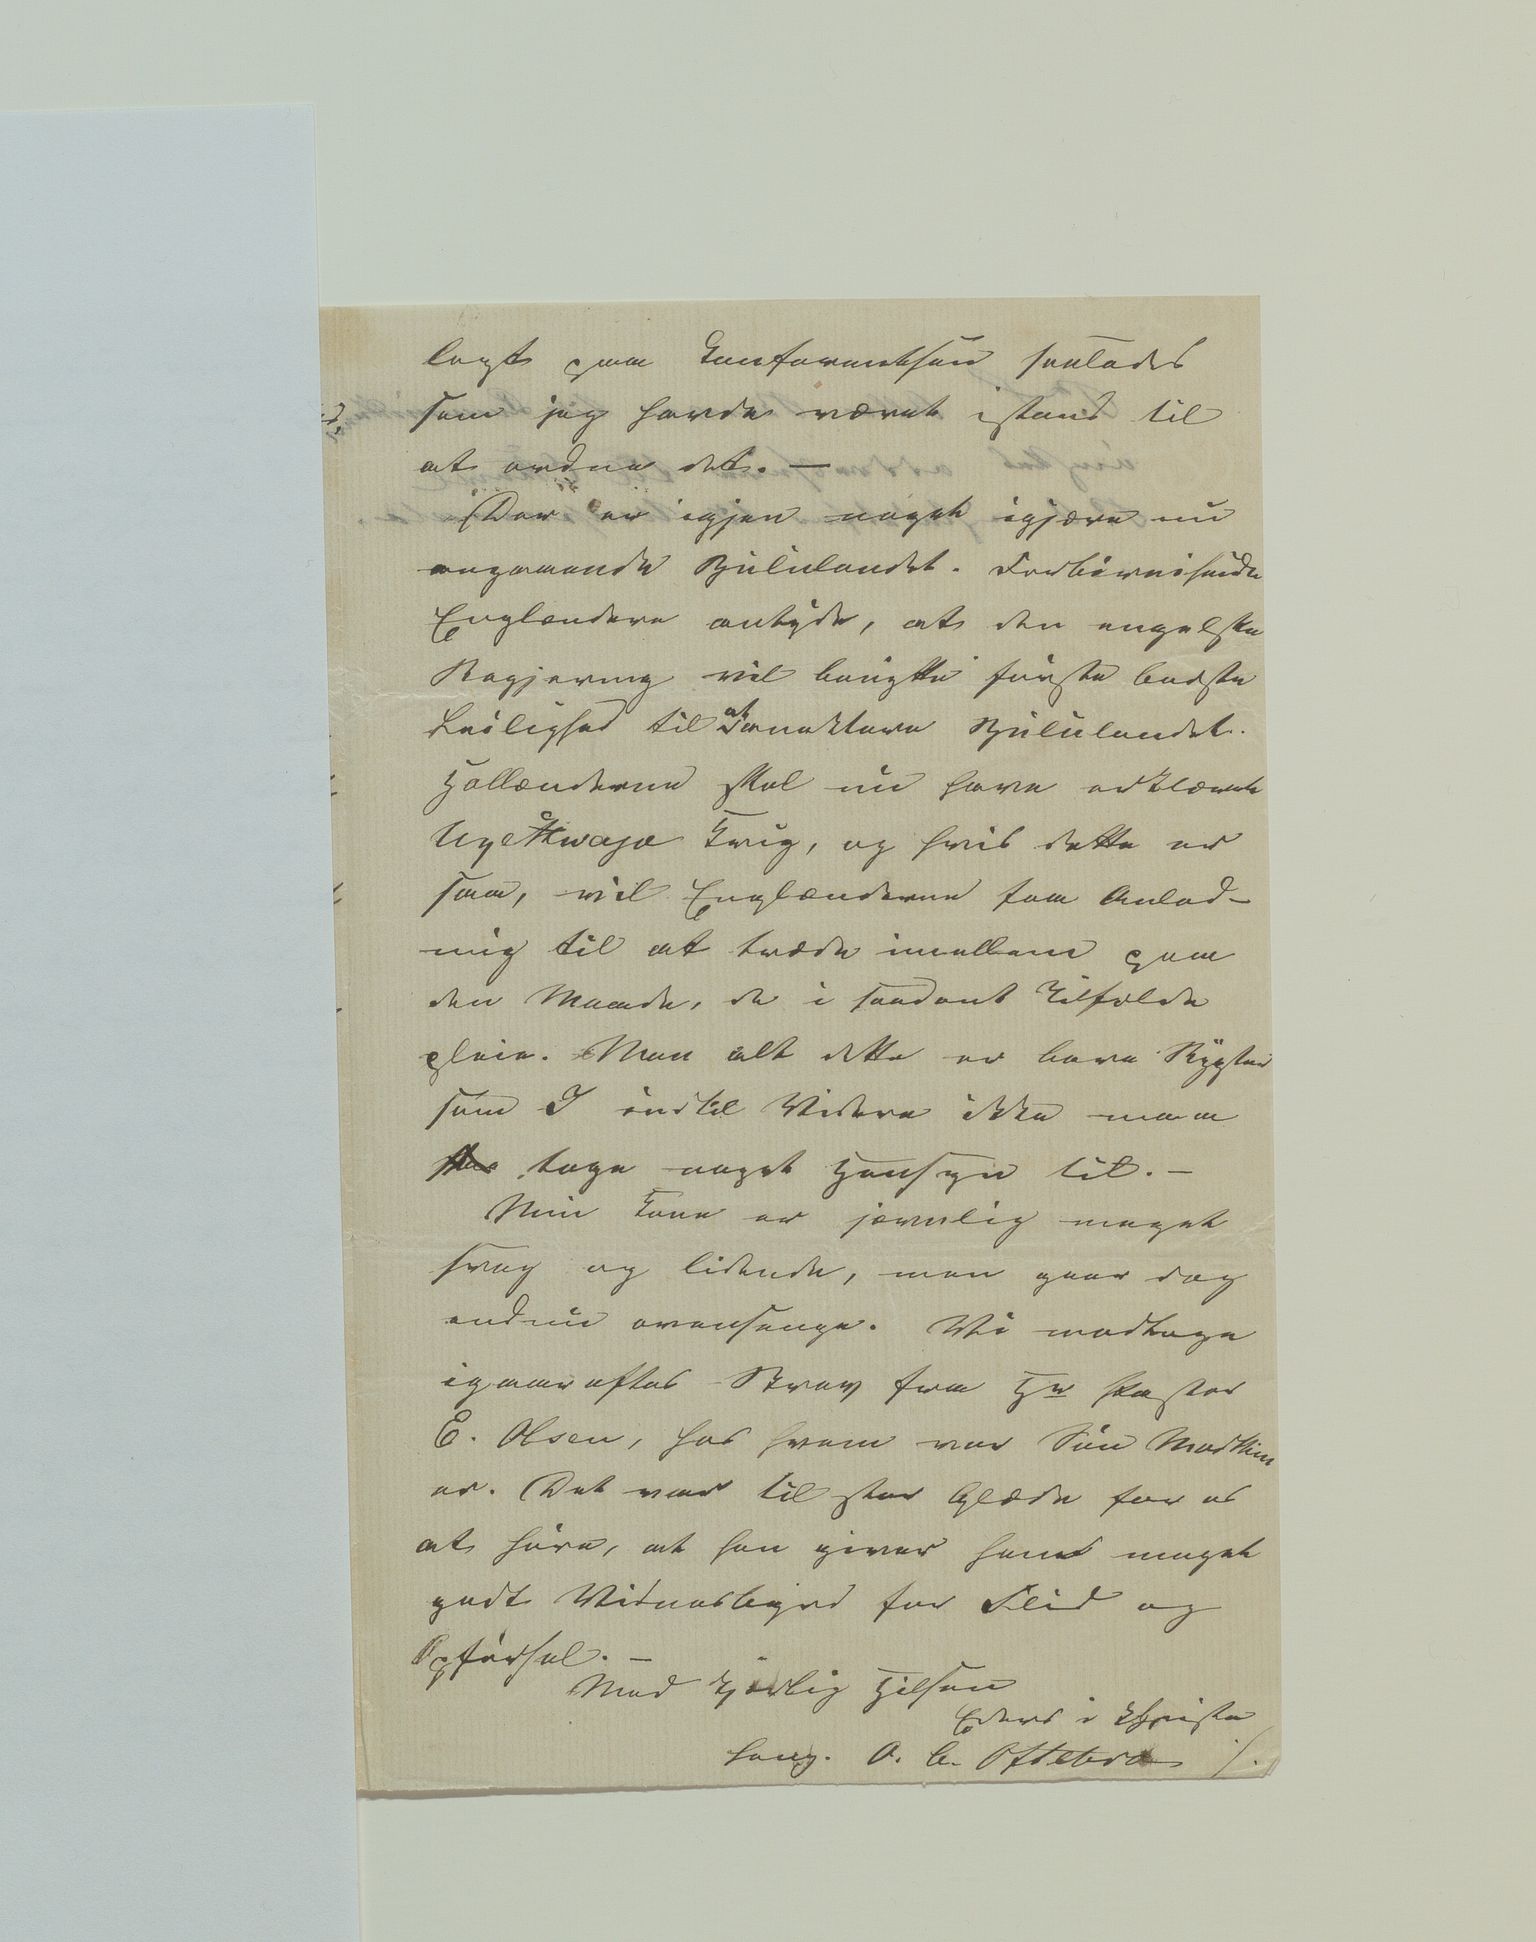 lagt paa Konferentsen saaledes
som jeg havde været istand til
at ordne det. —
Der er igjen noget igjære nu
angaaende Zululandet. Forbireisende
Englændere antyde, at den engelske
Regjering vil benytte første bedste
Leilighed til at annektere Zululandet.
Hollænderne skal nu have erklæret
Ucetkwayo Krig, og hvis dette er
saa, vil Englænderne faa Anled-
ning til at træde imellem paa
den Maade, de i saadant Tilfælde
pleie. Men alt dette er bare Rygter
som I indtil Videre ikke maa
tage noget Hensyn til. —
Min Kone er jævnlig meget
svag og lidende, men gaar dog
endnu ovensenge. Vi modtoge
igaaraftes Brev fra Hr Pastor
E. Olsen, hos hvem vor Søn Martin
er. Det var til stor Glæde for os
at høre, at han giver ham meget
godt Vidnesbyrd for Flid og
Opførsel. —
Med kjærlig Hilsen
Eders i Christo
heng. O. C. Oftebro /.